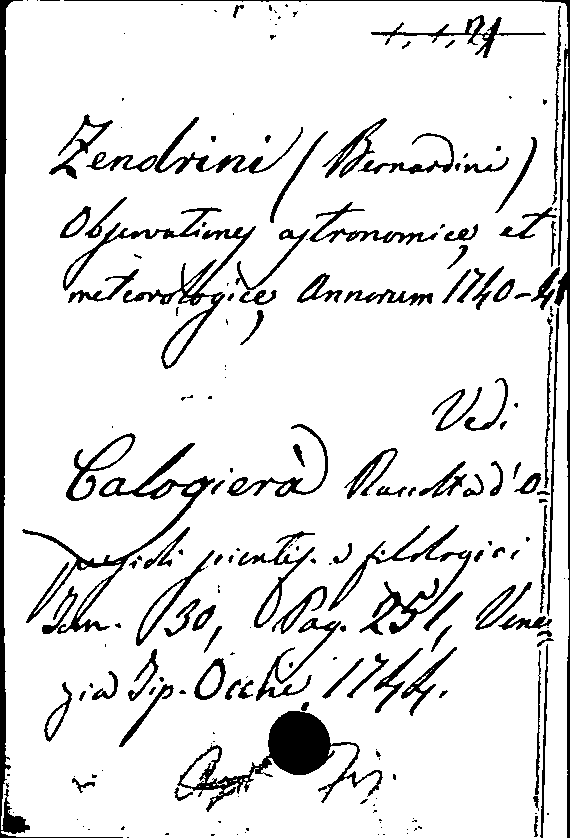 1, 1, 21
Zendrini (Bernardini)
Observationes astronomicę, et
meteorologicę, Annorum 1740-41
Vedi
Calogierà Raccolta d'O=
puscoli scientif. e filologici
Tom. 30, Pag. 251, Vene=
zia Tip. Occhi, 1744.
Fis.